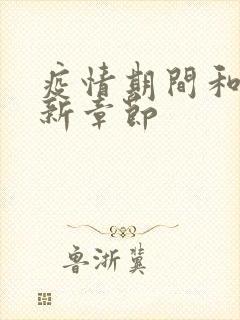 疫情期間和
新章節
魯浙冀